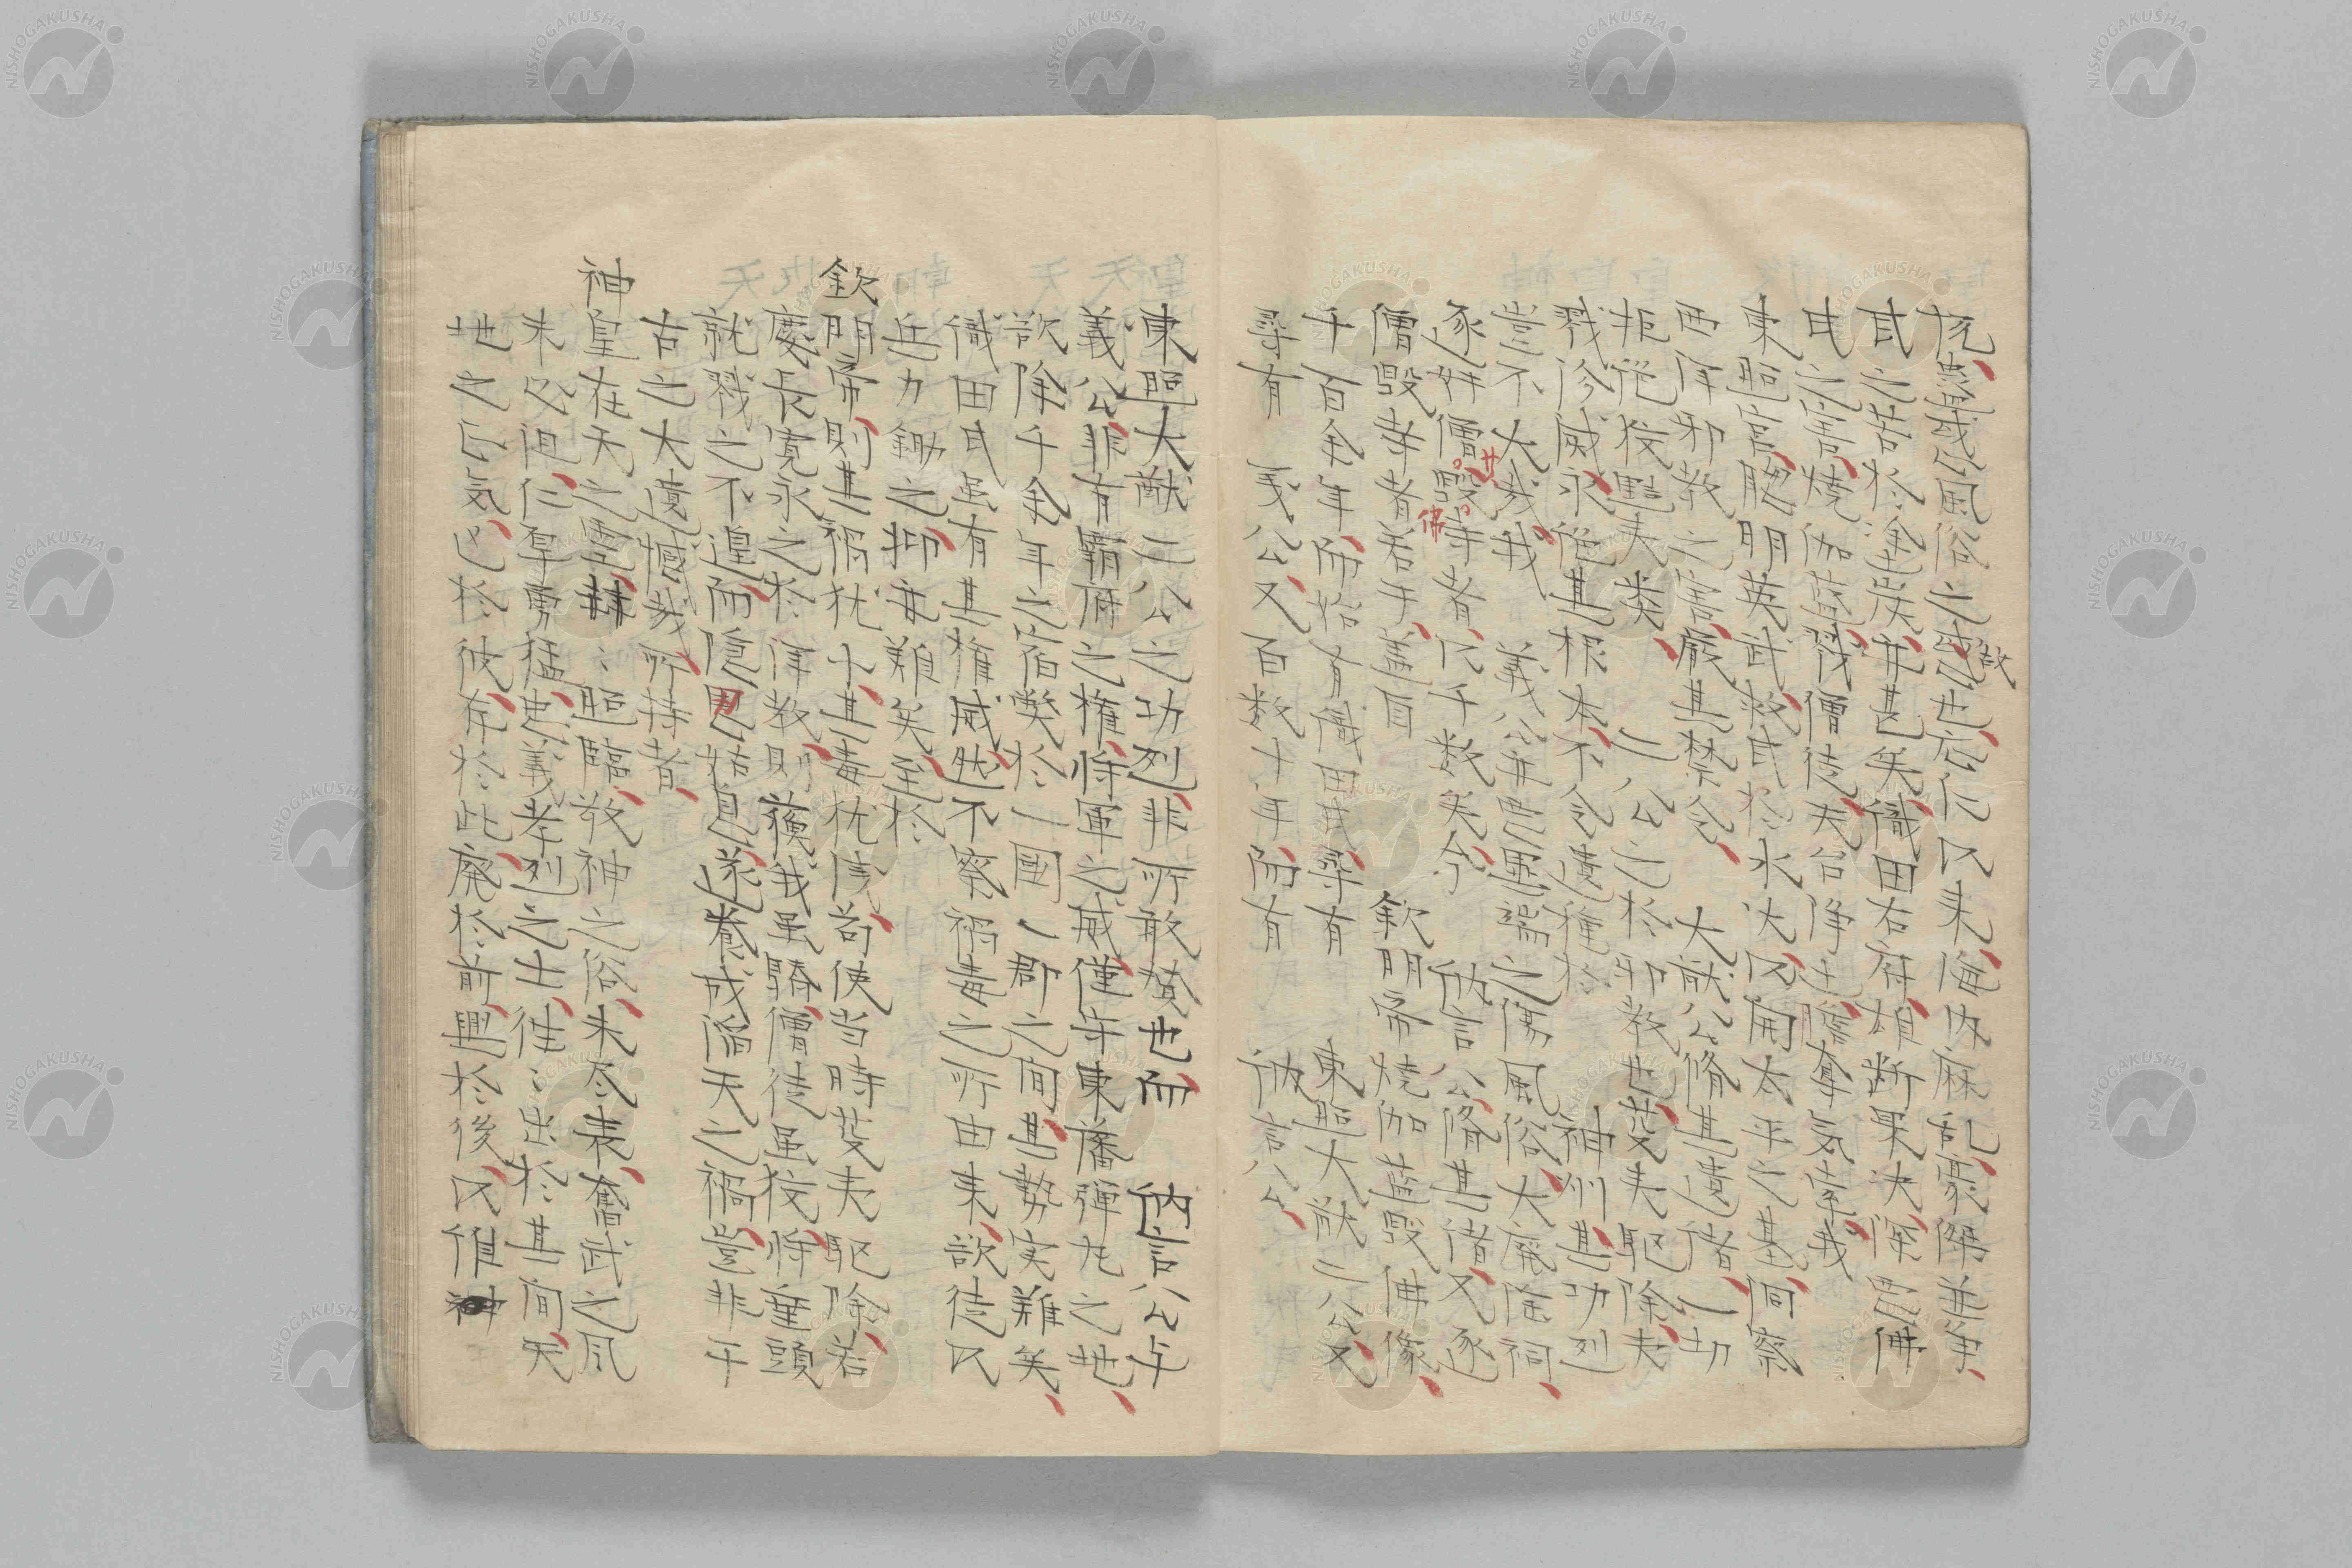 抗、蠱惑風俗之故也、応仁以来、海内麻乱、豪傑並争、
民之苦於塗炭、亦甚矣、織田右府、雄断果決、深悪佛
氏之害、焼伽藍、戮僧徒、夫台浄土、奪気幸哉
東照宮、聡明英武、救民於水火、以開太平之基、洞察
西洋邪教之害、厳其禁令、 大猷公脩其遺緒、一切
拒絶狡黠夫類、 二公之於邪教也、芟夷駆除、夫
戮殄滅、永絶其根本、不令遺種於 神州、其功烈
豈不大哉 義公亦悪異端之傷風俗、大廃淫祠、
逐奸僧、毀寺者以千数矣、今 納言公脩其緒、又逐
僧毀寺者若干、蓋自 欽明帝焼伽藍毀佛像、
千百余年、而始有織田氏、尋有 東照大猷二公、又
尋有 義公、又百数十年、而有 納言公、
東照大猷二公之功烈、非所敢賛也、而 納言公与
義公、非有覇府之権、将軍之威、僅守東藩弾丸之地、
欲除千余年之宿弊於一国一郡之間、其勢実難矣、
織田氏虽有其権威、然不察禍毒之所由来、欲徒以
兵力鋤之、抑亦難矣、至於
欽明帝、則其禍猶小、其毒猶浅、苟使当時芟夷駆除、若
慶長寛永之於洋教、則蘓我虽驕、僧徒虽狡、将垂頭
就戮之不遑、而隠忍姑息、遂養成滔天之禍、豈非千
古之大遺憾哉、所恃者、
神皇在天之霊、赫々照臨、敬神之俗、未尽衰、奮武之風
未必沮、仁厚勇猛、忠義孝烈之士、往々出於其間、天
地之正気也、於彼存、於此廃、於前興、於後、以催神